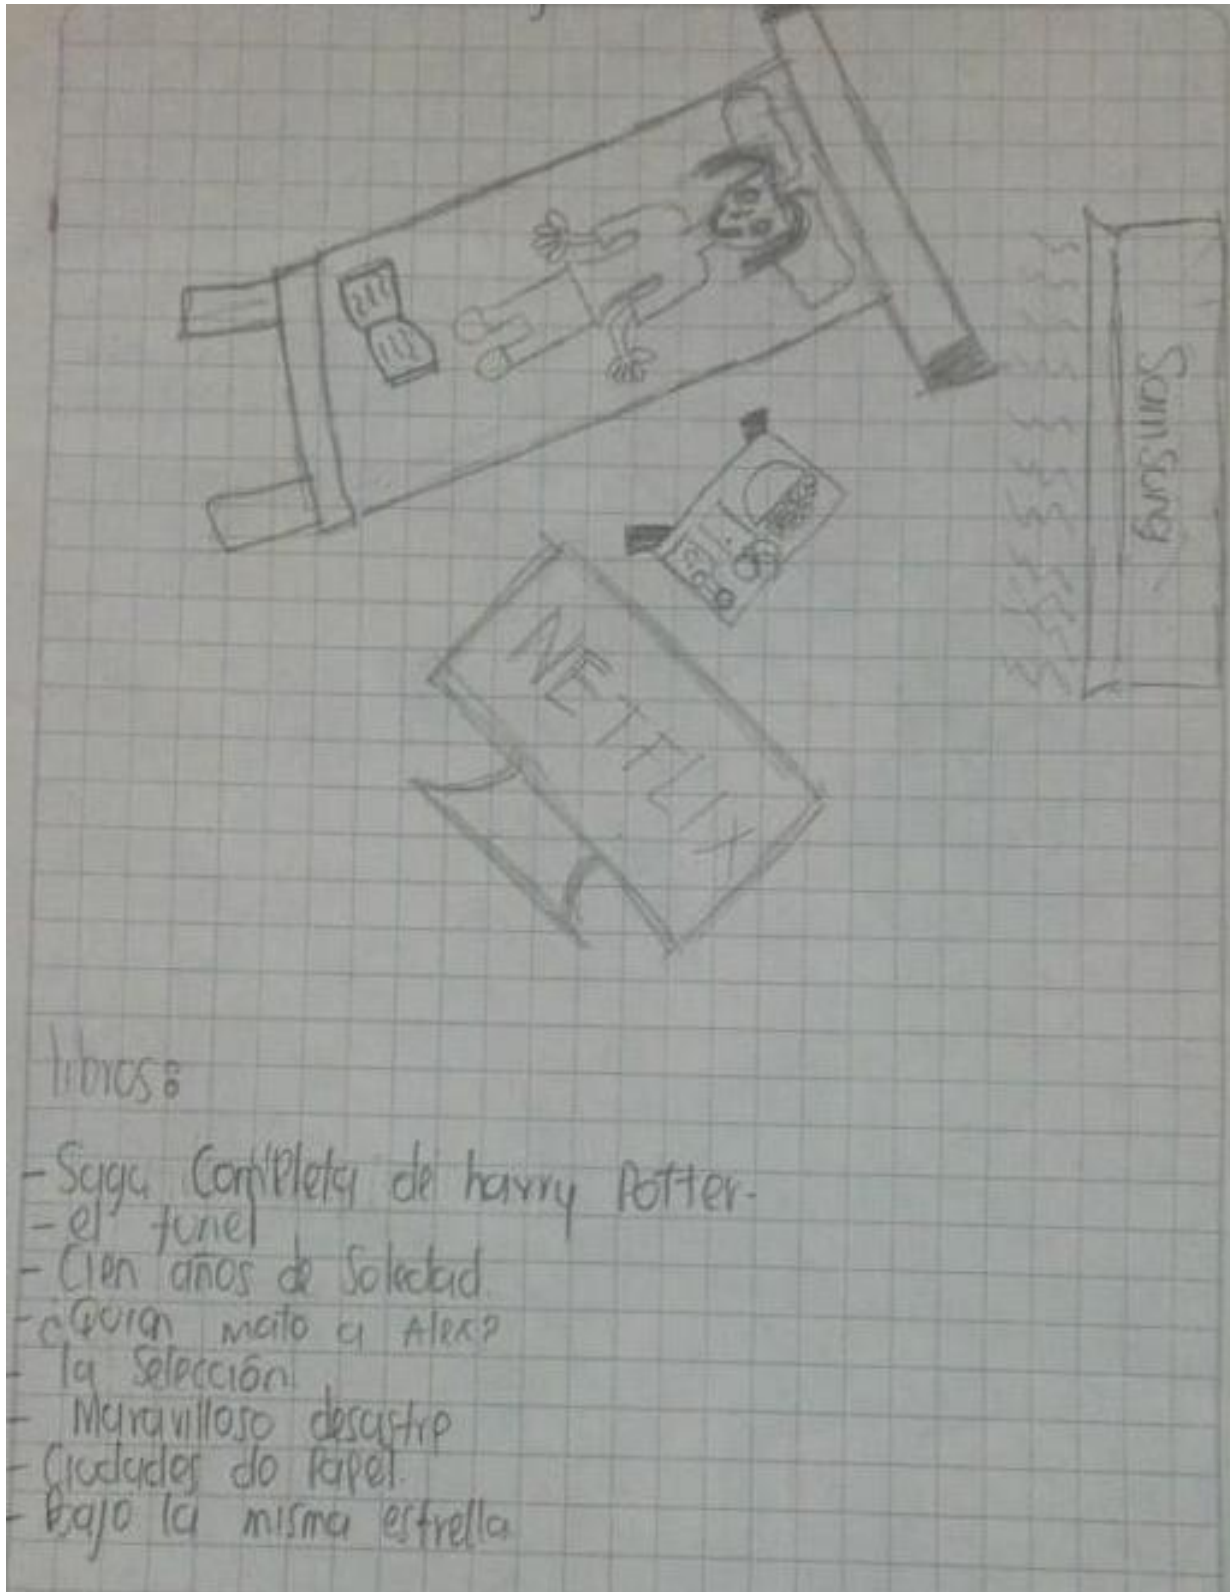 Samsung
NETFLIX
libros:
- Saga Completa de harry Potter.
- el tunel
- Cien años de Soledad.
- ¿Quien mato a Alex?
- la Selección
- Maravilloso desastre
- Ciudades de Papel.
- Bajo la misma estrella